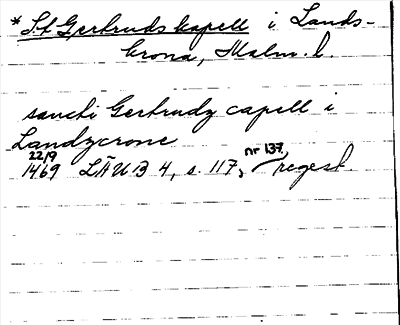 * S:t Gertruds kapell i Lands-
krona, Malm. l.
sancti Gertrudz capell i
Landzcrone
22/9
1469 LÄUB 4, s. 117, nr 137, regest.